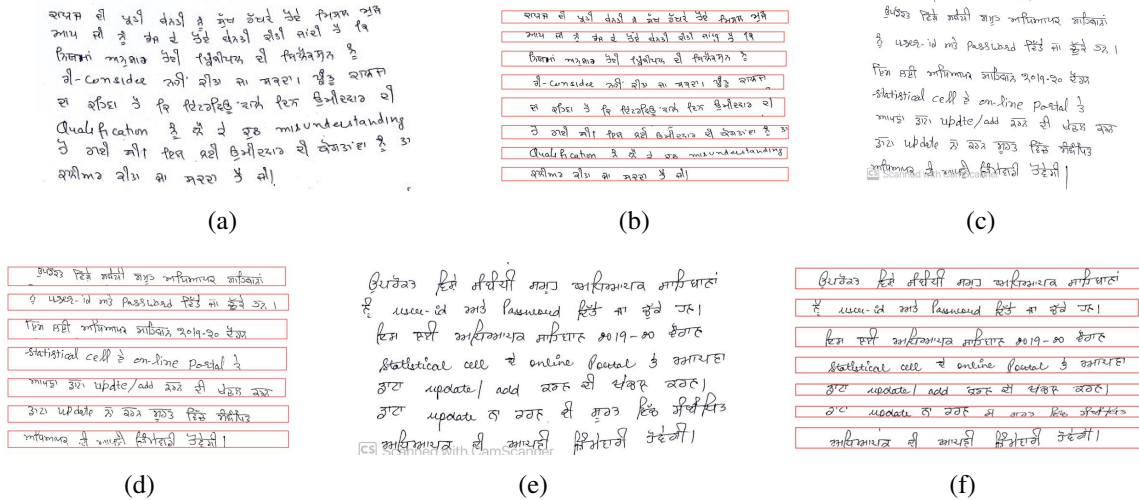 ਦੀ ਬੇਨਤੀ ਨੂੰ ਮੁੱਖ ਰੱਖਦੇ ਹੋਏ ਮਿਸਲ ਮੁੜ
ਆਪ ਜੀ ਨੂੰ ਭੇਜ ਕੇ ਹੋਏ ਬੇਨਤੀ ਕੀਤੀ ਜਾਂਦੀ ਹੈ ਕਿ
ਨਿਯਮਾਂ ਅਨੁਸਾਰ ਹੋਈ ਪ੍ਰਿੰਸੀਪਲ ਦੀ ਸਿਲੈਕਸ਼ਨ ਨੂੰ
ਰੀ-Consider ਨਹੀਂ ਕੀਤਾ ਜਾ ਸਕਦਾ। ਪ੍ਰੰਤੂ ਕਾਲਜ
ਦਾ ਕਹਿਣਾ ਹੈ ਕਿ ਇੰਟਰਵਿਊ ਵਾਲੇ ਦਿਨ ਉਮੀਦਵਾਰ ਦੀ
Qualification ਨੂੰ ਲੈ ਕੇ ਕੁਝ misunderstanding
ਹੋ ਗਈ ਸੀ। ਇਸ ਲਈ ਉਮੀਦਵਾਰ ਦੀ ਨੂੰ ਤਾਂ
ਕਲੀਅਰ ਕੀਤਾ ਜਾ ਸਕਦਾ ਹੈ ਜੀ।
(a)
ਦੀ ਬੇਨਤੀ ਨੂੰ ਮੁੱਖ ਰੱਖਦੇ ਹੋਏ ਮਿਸਲ ਮੁੜ
ਆਪ ਜੀ ਨੂੰ ਭੇਜ ਕੇ ਹੋਏ ਬੇਨਤੀ ਕੀਤੀ ਜਾਂਦੀ ਹੈ ਕਿ
ਨਿਯਮਾਂ ਅਨੁਸਾਰ ਹੋਈ ਪ੍ਰਿੰਸੀਪਲ ਦੀ ਸਿਲੈਕਸ਼ਨ ਨੂੰ
ਰੀ-Consider ਨਹੀਂ ਕੀਤਾ ਜਾ ਸਕਦਾ। ਪ੍ਰੰਤੂ ਕਾਲਜ
ਦਾ ਕਹਿਣਾ ਹੈ ਕਿ ਇੰਟਰਵਿਊ ਵਾਲੇ ਦਿਨ ਉਮੀਦਵਾਰ ਦੀ
ਹੋ ਗਈ ਸੀ। ਇਸ ਲਈ ਉਮੀਦਵਾਰ ਦੀ ਨੂੰ ਤਾਂ
Qualification ਨੂੰ ਲੈ ਕੇ ਕੁਝ misunderstanding
ਕਲੀਅਰ ਕੀਤਾ ਜਾ ਸਕਦਾ ਹੈ ਜੀ।
(b)
ਉਪਰੋਕਤ ਵਿਸ਼ੇ ਸਬੰਧੀ ਸਮੂਹ ਅਧਿਆਪਕ ਸਾਹਿਬਾਨਾਂ
ਨੂੰ user-id ਅਤੇ Password ਦਿੱਤੇ ਜਾ ਚੁੱਕੇ ਹਨ।
ਇਸ ਲਈ ਅਧਿਆਪਕ ਸਾਹਿਬਾਨ 2019-20 ਦੌਰਾਨ
Statistical cell ਦੇ on-line Portal ਤੇ
ਆਪਣਾ ਡਾਟਾ updte/add ਕਰਨ ਦੀ ਖੇਚਲ ਕਰਨ
ਡਾਟਾ update ਨਾ ਕਰਨ ਸੂਰਤ ਵਿੱਚ ਸੰਬੰਧਿਤ
ਅਧਿਆਪਕ ਦੀ ਆਪਣੀ ਜਿੰਮੇਵਾਰੀ ਹੋਵੇਗੀ।
CS Scanned with CamScanner
(c)
ਉਪਰੋਕਤ ਵਿਸ਼ੇ ਸਬੰਧੀ ਸਮੂਹ ਅਧਿਆਪਕ ਸਾਹਿਬਾਨਾਂ
ਨੂੰ user-id ਅਤੇ Password ਦਿੱਤੇ ਜਾ ਚੁੱਕੇ ਹਨ।
ਇਸ ਲਈ ਅਧਿਆਪਕ ਸਾਹਿਬਾਨ 2019-20 ਦੌਰਾਨ
Statistical cell ਦੇ on-line Portal ਤੇ
ਆਪਣਾ ਡਾਟਾ updte/add ਕਰਨ ਦੀ ਖੇਚਲ ਕਰਨ
ਡਾਟਾ update ਨਾ ਕਰਨ ਸੂਰਤ ਵਿੱਚ ਸੰਬੰਧਿਤ
ਅਧਿਆਪਕ ਦੀ ਆਪਣੀ ਜਿੰਮੇਵਾਰੀ ਹੋਵੇਗੀ।
(d)
ਉਪਰੋਕਤ ਵਿਸ਼ੇ ਸੰਬੰਧੀ ਸਮੂਹ ਅਧਿਆਪਕ ਸਾਹਿਬਾਨਾਂ
ਨੂੰ user-id ਅਤੇ Password ਦਿੱਤੇ ਜਾ ਚੁੱਕੇ ਹਨ।
ਇਸ ਲਈ ਅਧਿਆਪਕ ਸਾਹਿਬਾਨ 2019-20 ਦੌਰਾਨ
Statistical cell ਦੇ online Portal ਤੇ ਆਪਣਾ
ਡਾਟਾ update/add ਕਰਨ ਦੀ ਖੇਚਲ ਕਰਨ।
ਡਾਟਾ update ਨਾ ਕਰਨ ਦੀ ਸੂਰਤ ਵਿੱਚ ਸੰਬੰਧਿਤ
ਅਧਿਆਪਕ ਦੀ ਆਪਣੀ ਜਿੰਮੇਵਾਰੀ ਹੋਵੇਗੀ।
CS Scanned with CamScanner
(e)
ਉਪਰੋਕਤ ਵਿਸ਼ੇ ਸੰਬੰਧੀ ਸਮੂਹ ਅਧਿਆਪਕ ਸਾਹਿਬਾਨਾਂ
ਨੂੰ user-id ਅਤੇ Password ਦਿੱਤੇ ਜਾ ਚੁੱਕੇ ਹਨ।
ਇਸ ਲਈ ਅਧਿਆਪਕ ਸਾਹਿਬਾਨ 2019-20 ਦੌਰਾਨ
Statistical cell ਦੇ online Portal ਤੇ ਆਪਣਾ
ਡਾਟਾ update/add ਕਰਨ ਦੀ ਖੇਚਲ ਕਰਨ।
ਡਾਟਾ update ਨਾ ਕਰਨ ਦੀ ਸੂਰਤ ਵਿੱਚ ਸੰਬੰਧਿਤ
ਅਧਿਆਪਕ ਦੀ ਆਪਣੀ ਜਿੰਮੇਵਾਰੀ ਹੋਵੇਗੀ।
(f)